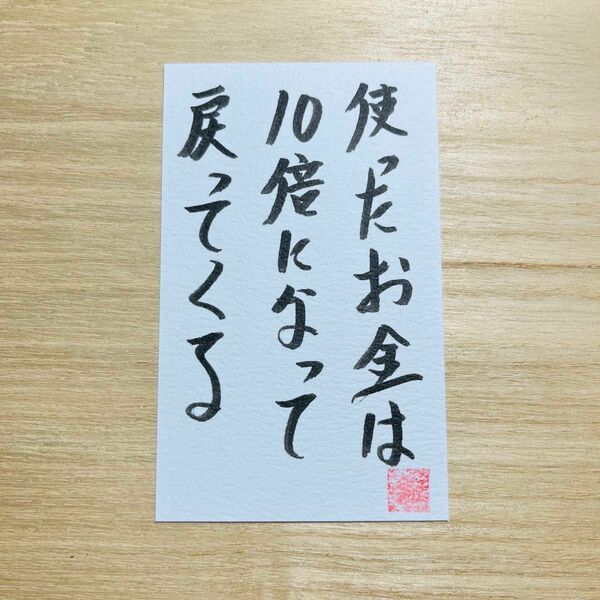 使ったお金は
10倍になって
戻ってくる